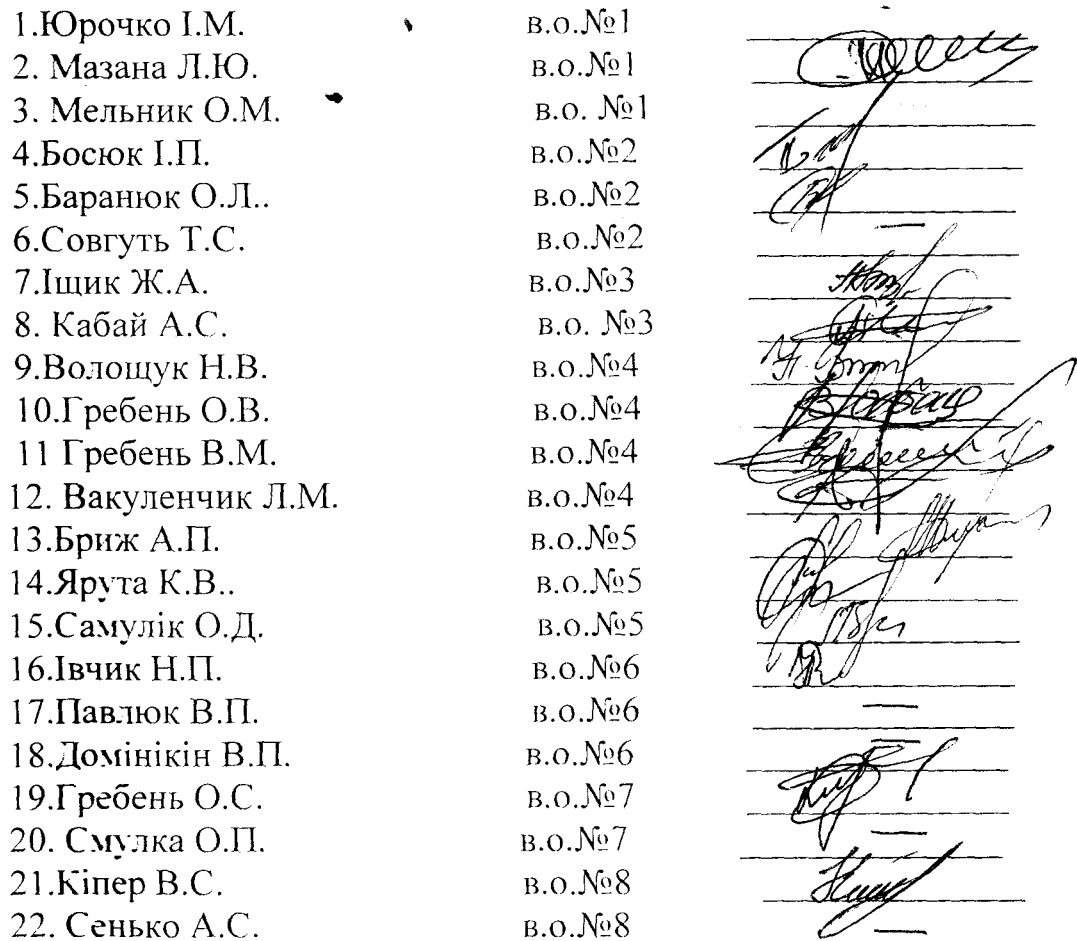 1.Юрочко І.М. в.о.№1
2. Мазана Л.Ю. в.о.№1
3. Мельник О.М. в.о. №1
4.Босюк І.П. в.о.№2
5.Баранюк О.Л.. в.о.№2
6.Совгуть Т.С. в.о.№2
7.Іщик Ж.А. в.о.№3
8. Кабай А.С. в.о. №3
9.Волощук Н.В. в.о.№4
10.Гребень О.В. в.о.№4
11 Гребень В.М. в.о.№4
12. Вакуленчик Л.М. в.о.№4
13.Бриж А.П. в.о.№5
14.Ярута К.В.. в.о.№5
15.Самулік О.Д. в.о.№5
16.Івчик Н.П. в.о.№6
17.Павлюк В.П. в.о.№6
18.Домінікін В.П. в.о.№6
19.Гребень О.С. в.о.№7
20. Смулка О.П. в.о.№7
21.Кіпер В.С. в.о.№8
22. Сенько А.С. в.о.№8